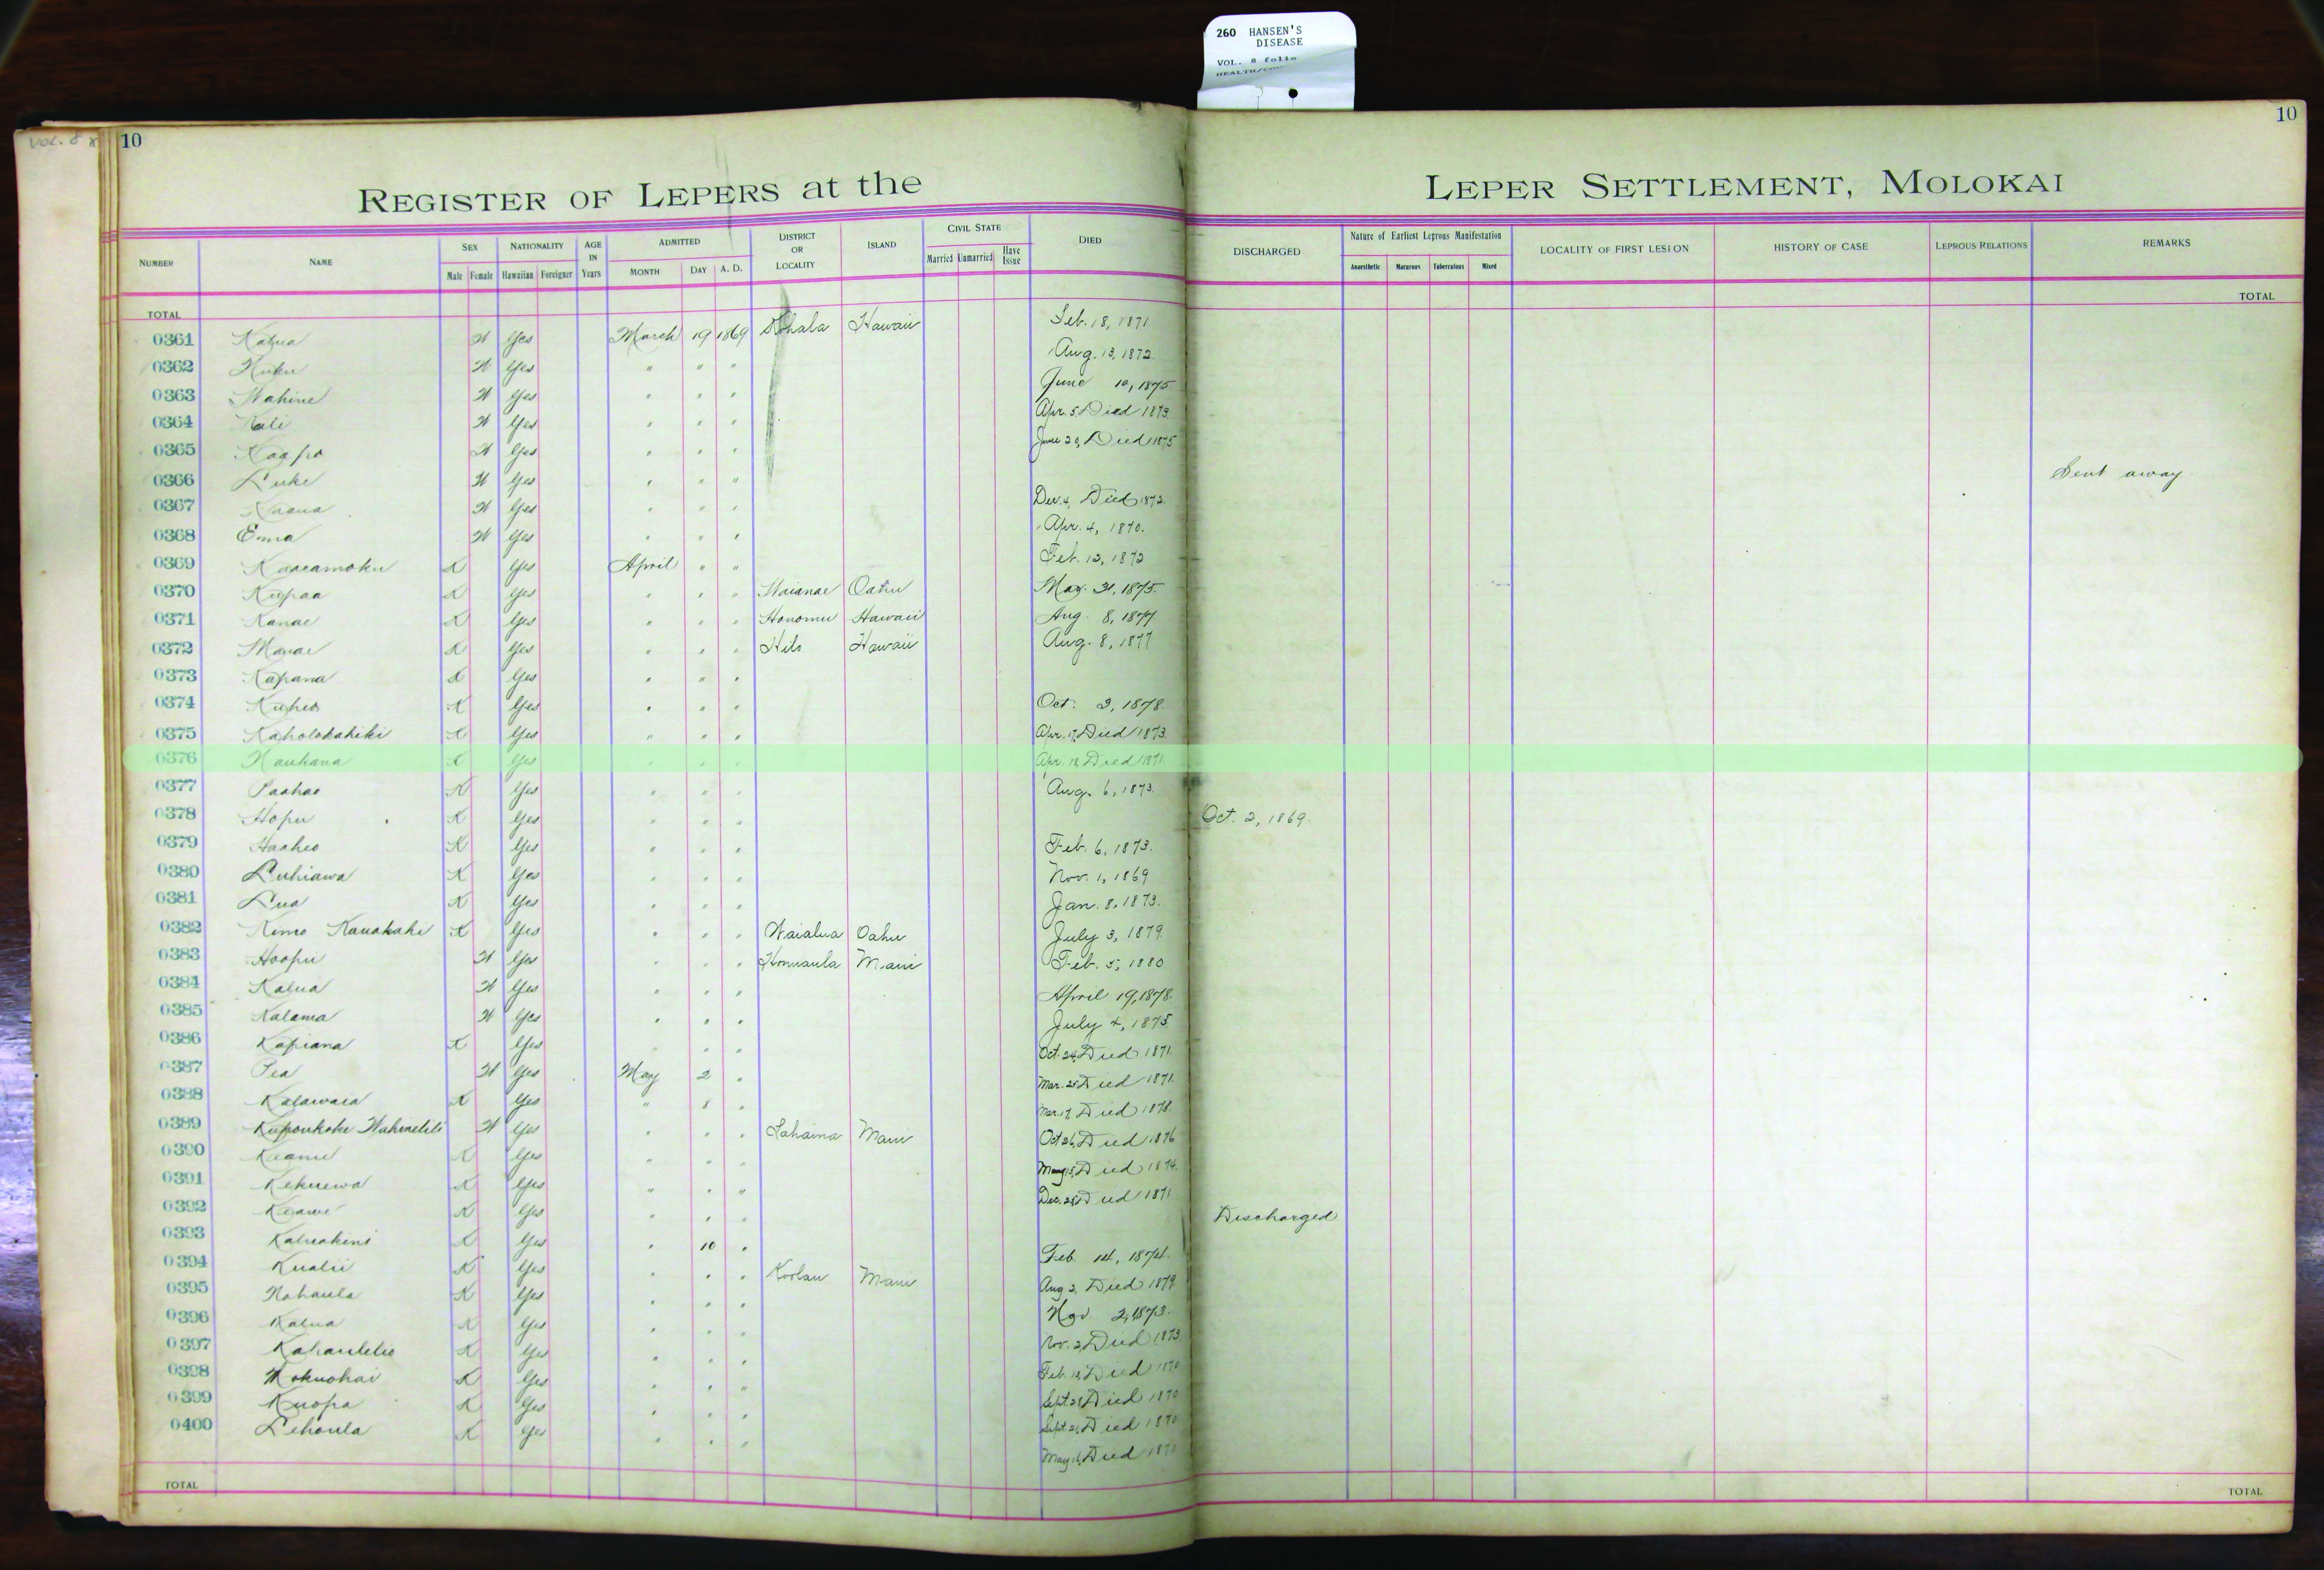 260 HANSEN'S
DISEASE
VOL. 8 folio
VOL. 8
10
10
REGISTER OF LEPERS at the LEPER SETTLEMENT, MOLOKAI
NUMBER NAME SEX Male Female NATIONALITY Hawaiian Foreigner AGE IN Years ADMITTED MONTH DAY A. D. DISTRICT OR LOCALITY ISLAND CIVIL STATE Married Unmarried Have Issue DIED DISCHARGED Nature of Earliest Leprous Manifestation Anaesthetic Macurous Tuberculous Mixed LOCALITY OF FIRST LESION HISTORY OF CASE LEPROUS RELATIONS REMARKS
TOTAL TOTAL
0361 Kalua W Yes March 19 1869 Kohala Hawaii Feb. 18, 1871
0362 Kuku W Yes " " " Aug. 13, 1872.
0363 Wahine W Yes " " " June 10, 1875
0364 Kali W Yes " " " Apr. 5 Died 1873.
0365 Kaapo W Yes " " " June 20, Died 1875
0366 Luke W Yes " " " Sent away
0367 W Yes " " " Dec. 4, Died 1872.
0368 Emma W Yes " " " Apr. 4, 1870.
0369 Kaaeamoku K Yes April " " Feb. 12, 1872
0370 Kupaa K Yes " " " Waianae Oahu May. 31, 1875.
0371 Kanae K Yes " " " Honomu Hawaii Aug. 8, 1877
0372 K Yes " " " Hilo Hawaii Aug. 8, 1877
0373 Kapana K Yes " " "
0374 Kuheo K Yes " " " Oct. 3, 1878.
0375 Kaholokahiki K Yes " " " Apr. 17, Died 1873.
0376 Naukana K Yes " " " Apr. 18 Died 1871.
0377 Paahao K Yes " " " Aug. 6, 1873.
0378 Hopu K Yes " " " Oct. 2, 1869.
0379 Haaheo K Yes " " " Feb. 6, 1873.
0380 Luhiawa K Yes " " " Nov. 1, 1869
0381 Lua K Yes " " " Jan. 8, 1873.
0382 Kimo Kauakahi K Yes " " " Waialua Oahu July 3, 1879.
0383 Hoopii W Yes " " " Honuaula Maui Feb. 5, 1880
0384 Kalua W Yes " " " April 19, 1878.
0385 Kalama W Yes " " " July 4, 1875
0386 Kapiana K Yes " " " Oct. 24, Died 1871.
0387 Pea W Yes May 2 " Mar. 25 Died 1871.
0388 Kalawaia K Yes " 8 " Mar. 17, Died 1878.
0389 W Yes " " " Lahaina Maui Oct 26, Died 1876
0390 Keanu K Yes " " " May 15, Died 1874.
0391 Kekuewa K Yes " " " Dec. 28, Died 1871
0392 Keawe K Yes " " " Discharged
0393 Kaluakini K Yes " 10 " Feb. 14, 1874.
0394 Kualii K Yes " " " Koolau Maui Aug 2, Died 1879.
0395 Nahaula K Yes " " " Nov 2, 1873.
0396 Kalua K Yes " " " Nov. 2, Died 1873
0397 Kahaulelio K Yes " " " Feb. 18, Died 1870
0398 Mokuohai K Yes " " " Sept. 28 Died 1870
0399 Kuopa K Yes " " " Sept. 21, Died 1870
0400 Lehoula K Yes " " " May 16, Died 1870
TOTAL TOTAL